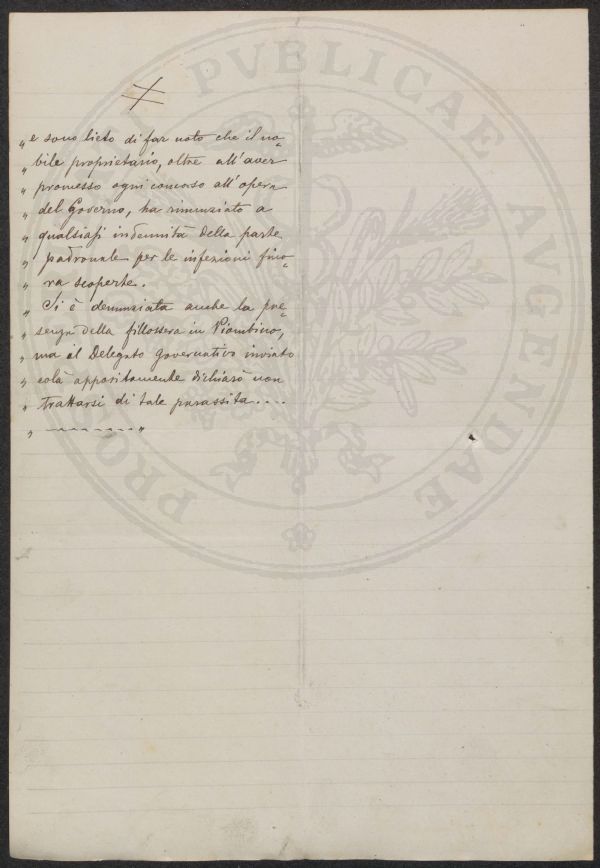 „ e sono lieto di far noto che il no=
„ bile proprietario, oltre all'aver
„ promesso ogni concorso all'opera
„ del Governo, ha rinunziato a
„ qualsiasi indennità della parte
„ padronale per le infezioni fino=
„ ra scoperte.
„ Si è denunziata anche la pre=
„ senza della fillossera in Piombino,
„ ma il Delegato governativo inviato
„ colà appositamente dichiarò non
„ trattarsi di tale parassita....
„ ~~~~~~~ „
PVBLICAE AVGENDAE